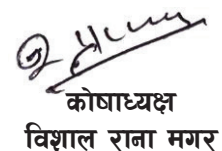 कोषाध्यक्ष
विशाल राना मगर